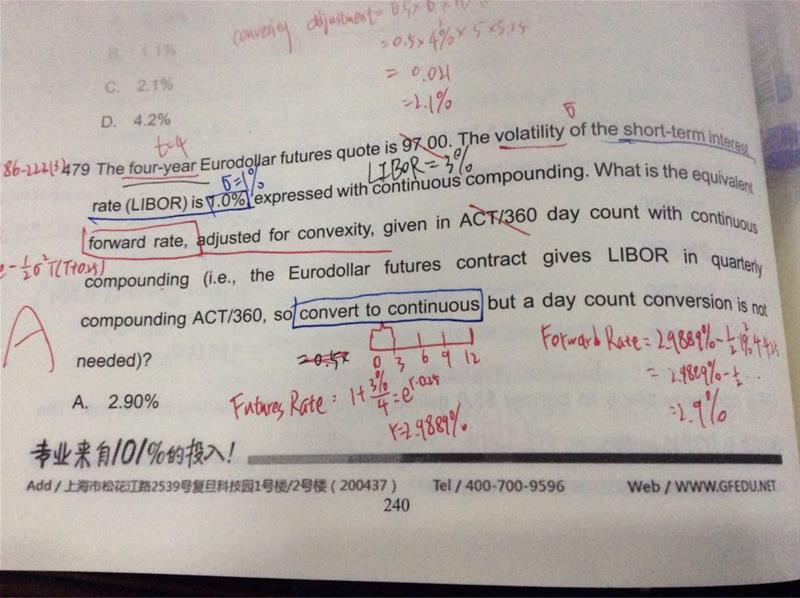 convexity adjustment = 0.5×
= 0.5×4%²×5×5.25
B. 1.1%
= 0.021
C. 2.1%
= 2.1%
D. 4.2%
t=4
σ
86-222(3)
479 The four-year Eurodollar futures quote is 97.00. The volatility of the short-term interest
σ=1%
LIBOR=3%
rate (LIBOR) is 1.0%, expressed with continuous compounding. What is the equivalent
forward rate, adjusted for convexity, given in ACT/360 day count with continuous
-½σ²T(T+0.25)
compounding (i.e., the Eurodollar futures contract gives LIBOR in quarterly
compounding ACT/360, so convert to continuous but a day count conversion is not
needed)?
A
=0.5×
0 3 6 9 12
Forward Rate = 2.9889% - ½ 1%² 4·4.25
= 2.9889% - ½ ...
= 2.9%
A. 2.90%
Futures Rate: 1+3%/4=e^r·0.25
r=2.9889%
专业来自101%的投入!
Add / 上海市松花江路2539号复旦科技园1号楼/2号楼（200437） Tel / 400-700-9596 Web / WWW.GFEDU.NET
240